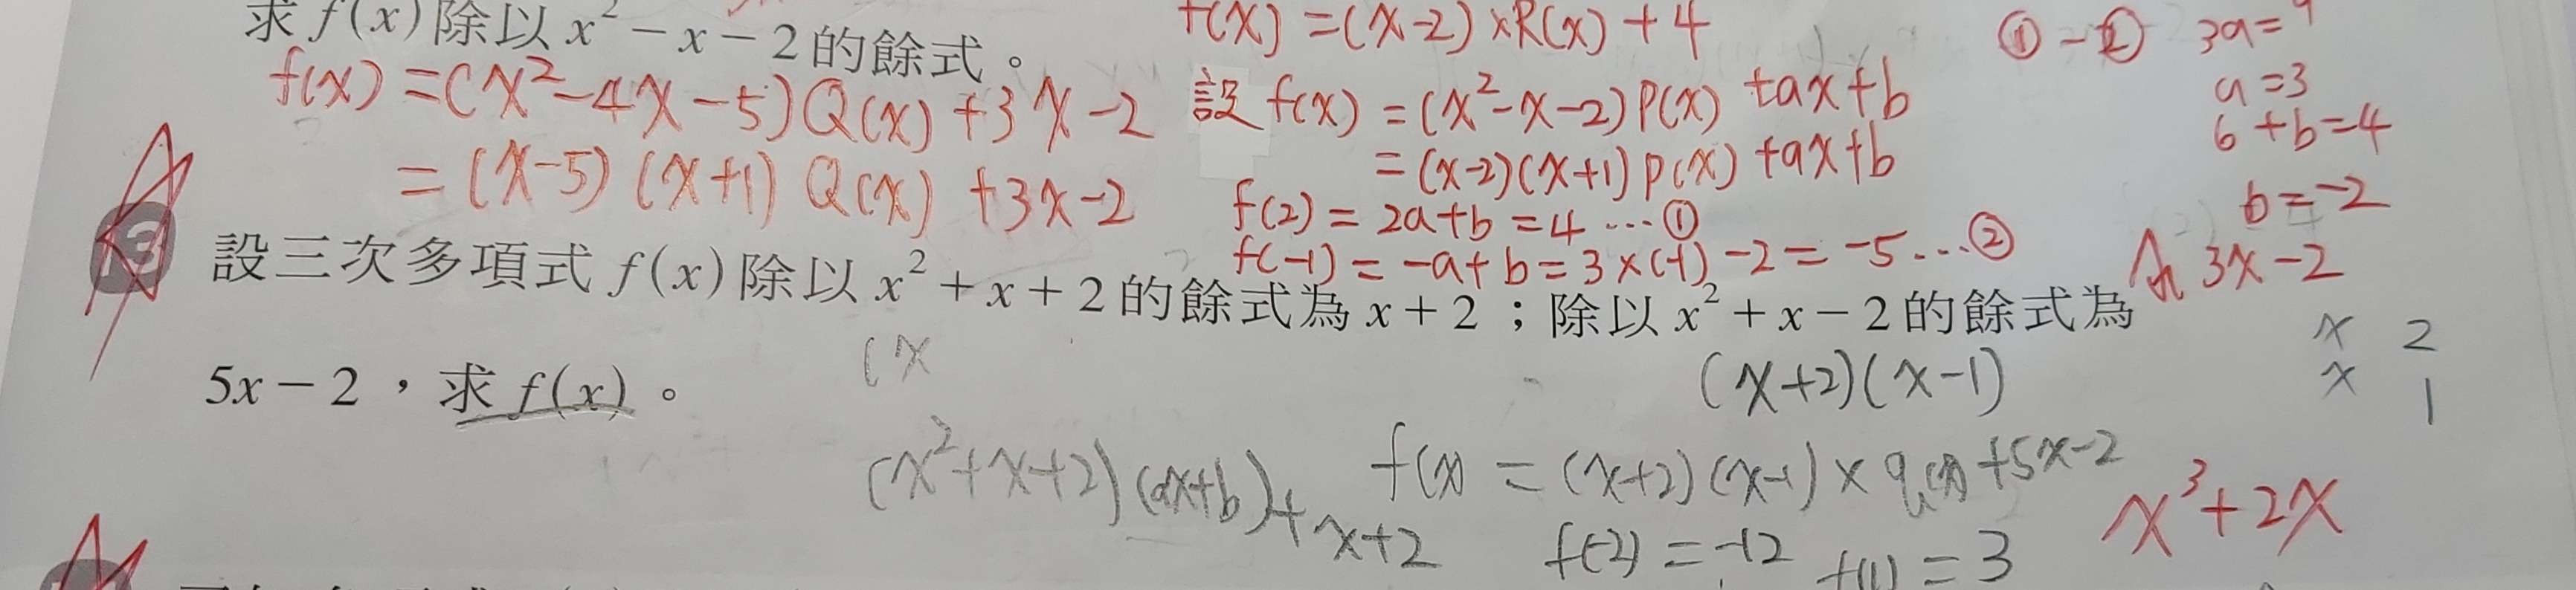 求 f(x) 除以 x² − x − 2 的餘式。
f(x) = (x²−4x−5)Q(x) +3x−2
= (x−5)(x+1) Q(x) +3x−2
f(x) = (x−2)×R(x) + 4
設 f(x) = (x²−x−2)P(x) +ax+b
= (x−2)(x+1)P(x) +ax+b
f(2) = 2a+b = 4 … ①
f(−1) = −a+b = 3×(−1) −2 = −5 … ②
① − ② 3a = 9
a = 3
6 + b = 4
b = −2
3x−2
13 設三次多項式 f(x) 除以 x² + x + 2 的餘式為 x + 2；除以 x² + x − 2 的餘式為
5x − 2，求 f(x)。
(x
(x+2)(x−1)
x 2
x 1
(x²+x+2)(ax+b)+x+2
f(x) = (x+2)(x−1)×q(x)+5x−2
f(−2) = −12 f(1) = 3
x³+2x